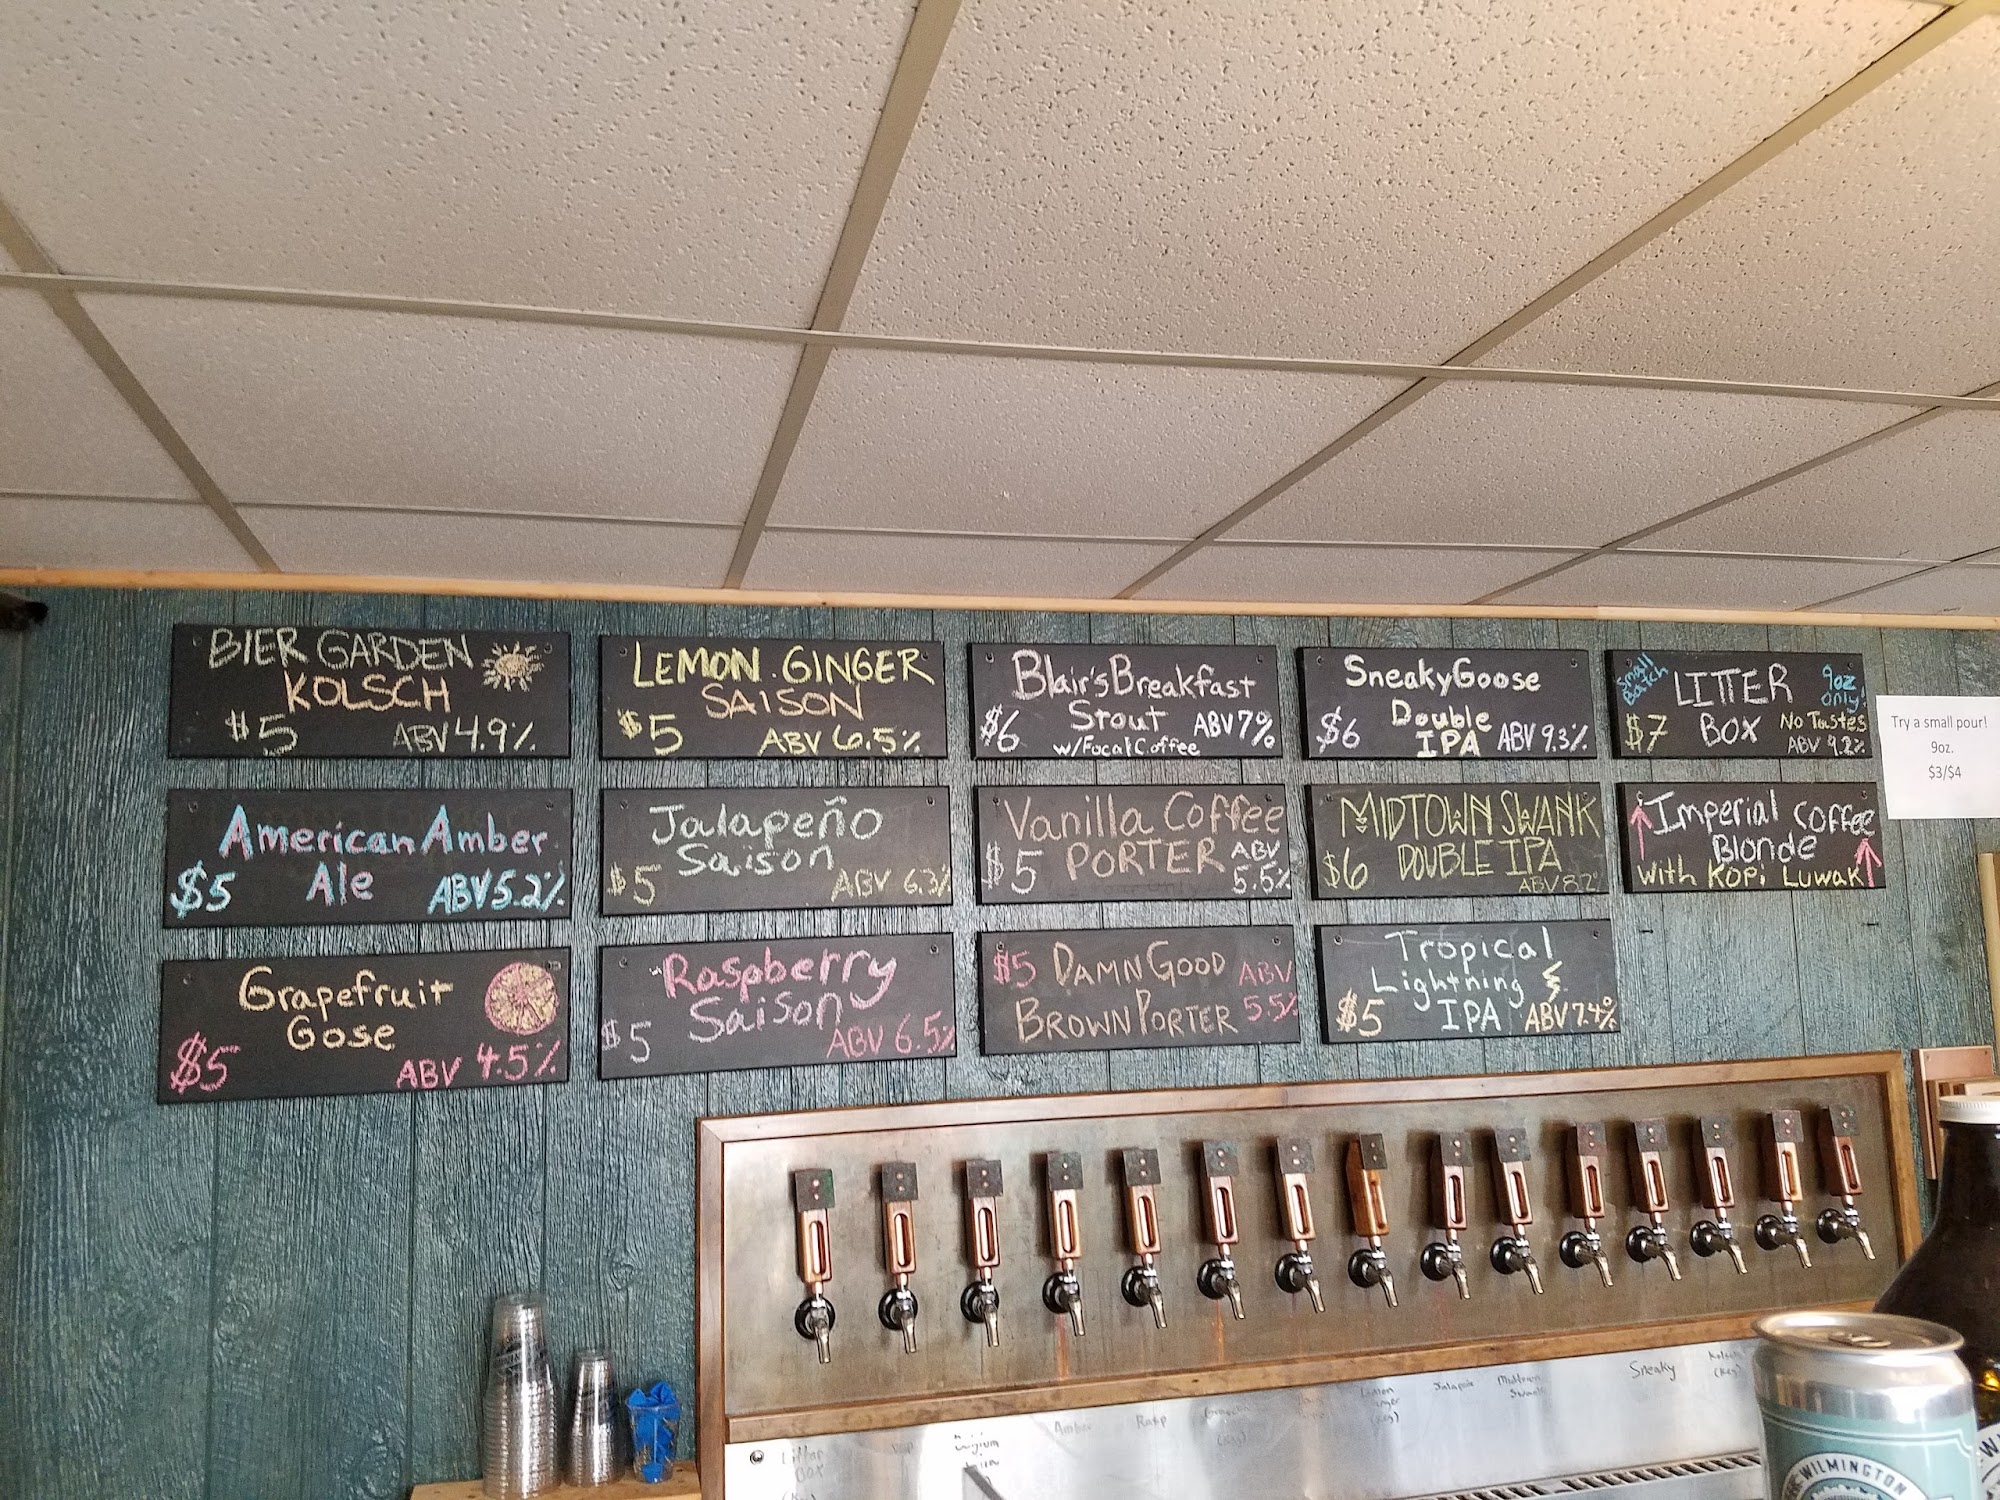 BIER GARDEN
KOLSCH
$5 ABV 4.9%
LEMON GINGER
SAISON
$5 ABV 6.5%
Blair's Breakfast
Stout
$6 ABV 7%
w/Focal Coffee
SneakyGoose
Double
$6 IPA ABV 9.3%
Small
Batch
LITTER
BOX
9oz
only!
$7 No Tastes
ABV 9.2%
Try a small pour!
9oz.
$3/$4
American Amber
Ale
$5 ABV 5.2%
Jalapeño
Saison
$5 ABV 6.3%
Vanilla Coffee
PORTER
$5 ABV
5.5%
MIDTOWN SWANK
DOUBLE IPA
$6 ABV 8.2%
Imperial Coffee
Blonde
with Kopi Luwak
Grapefruit
Gose
$5 ABV 4.5%
Raspberry
Saison
$5 ABV 6.5%
$5 DAMN GOOD ABV
BROWN PORTER 5.5%
Tropical
Lightning
$5 IPA ABV 7.4%
Litter
Box
Amber
Rasp
Sneaky
Midtown
Swank
WILMINGTON